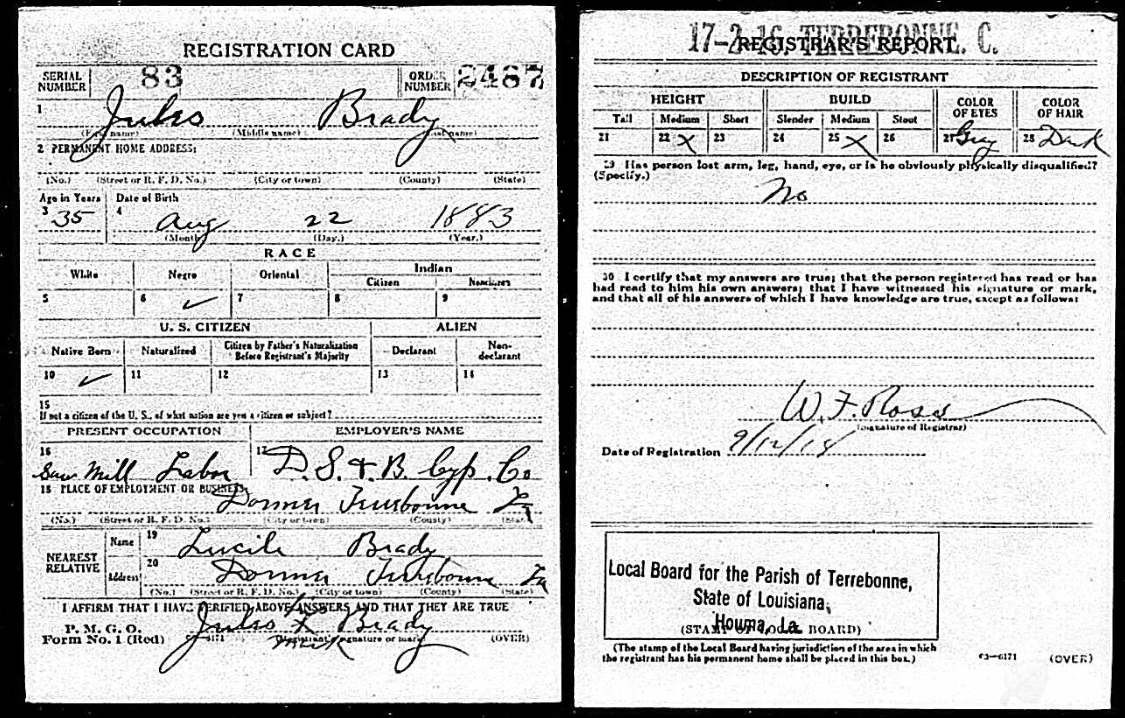 REGISTRATION CARD
SERIAL NUMBER 83 ORDER NUMBER 2487
1 Jules Brady
(First name) (Middle name) (Last name)
2 PERMANENT HOME ADDRESS:
(No.) (Street or R. F. D. No.) (City or town) (County) (State)
Age in Years Date of Birth
3 35 4 Aug 22 1883
(Month) (Day.) (Year.)
RACE
White Negro Oriental Indian
Citizen Noncitizen
5 6 ✓ 7 8 9
U. S. CITIZEN ALIEN
Native Born Naturalized Citizen by Father's Naturalization Before Registrant's Majority Declarant Non-declarant
10 ✓ 11 12 13 14
15
If not a citizen of the U. S., of what nation are you a citizen or subject?
PRESENT OCCUPATION EMPLOYER'S NAME
16 Saw Mill Labor 17 D. S. & B. Cyp. Co
18 PLACE OF EMPLOYMENT OR BUSINESS:
Donner Terrebonne La
(No.) (Street or R. F. D. No.) (City or town) (County) (State)
NEAREST RELATIVE Name 19 Lucile Brady
Address 20 Donner Terrebonne La
(No.) (Street or R. F. D. No.) (City or town) (County) (State)
I AFFIRM THAT I HAVE VERIFIED ABOVE ANSWERS AND THAT THEY ARE TRUE
P. M. G. O.
Form No. 1 (Red) Jules X Brady
mark (Registrant's signature or mark) (OVER)
17-2-16 TERREBONNE, C.
REGISTRAR'S REPORT
DESCRIPTION OF REGISTRANT
HEIGHT BUILD COLOR OF EYES COLOR OF HAIR
Tall Medium Short Slender Medium Stout
21 22 X 23 24 25 X 26 27 28 Dark
29 Has person lost arm, leg, hand, eye, or is he obviously physically disqualified?
(Specify.)
No
30 I certify that my answers are true; that the person registered has read or has
had read to him his own answers; that I have witnessed his signature or mark,
and that all of his answers of which I have knowledge are true, except as follows:
W. F. Ross
(Signature of Registrar)
Date of Registration 9/12/18
Local Board for the Parish of Terrebonne,
State of Louisiana,
Houma, La.
(STAMP OF LOCAL BOARD)
(The stamp of the Local Board having jurisdiction of the area in which
the registrant has his permanent home shall be placed in this box.)
03—6171 (OVER)